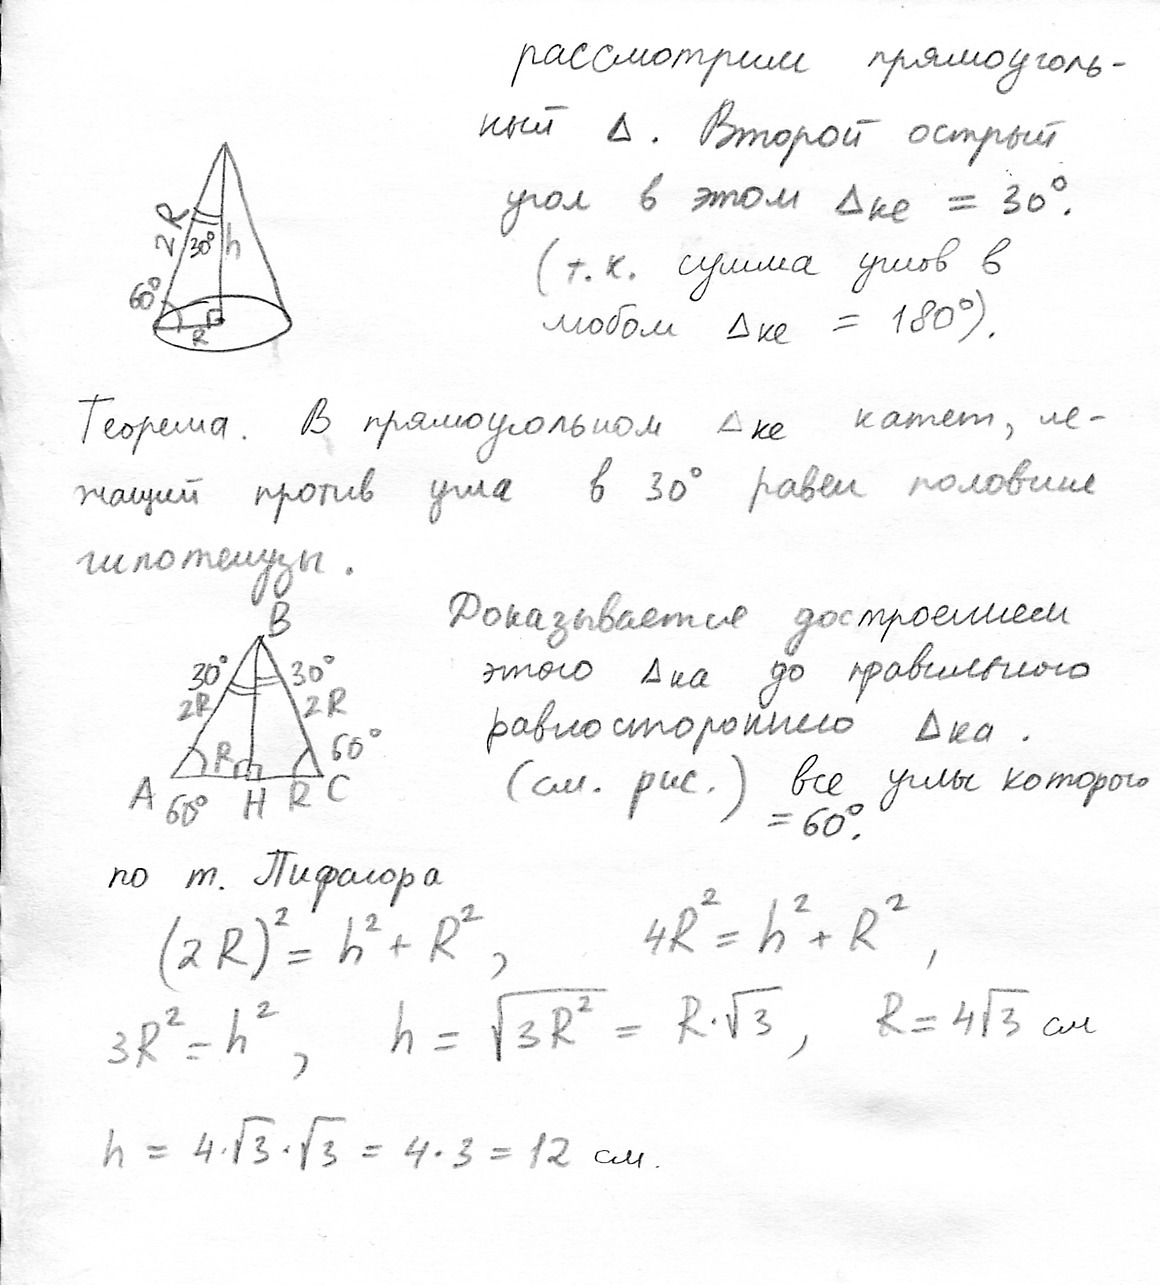 рассмотрим прямоуголь-
ный Δ. Второй острый
угол в этом Δке = 30°.
(т.к. сумма углов в
любом Δке = 180°).
2R
30°
h
60°
R
Теорема. В прямоугольном Δке катет, ле-
жащий против угла в 30° равен половине
гипотенузы.
B
30°
30°
2R
2R
R
60°
A
60°
H
R
C
Доказывается достроением
этого Δка до правильного
равностороннего Δка.
(см. рис.) все углы которого
= 60°.
по т. Пифагора
(2R)² = h² + R², 4R² = h² + R²,
3R² = h², h = √3R² = R·√3, R = 4√3 см
h = 4·√3·√3 = 4·3 = 12 см.